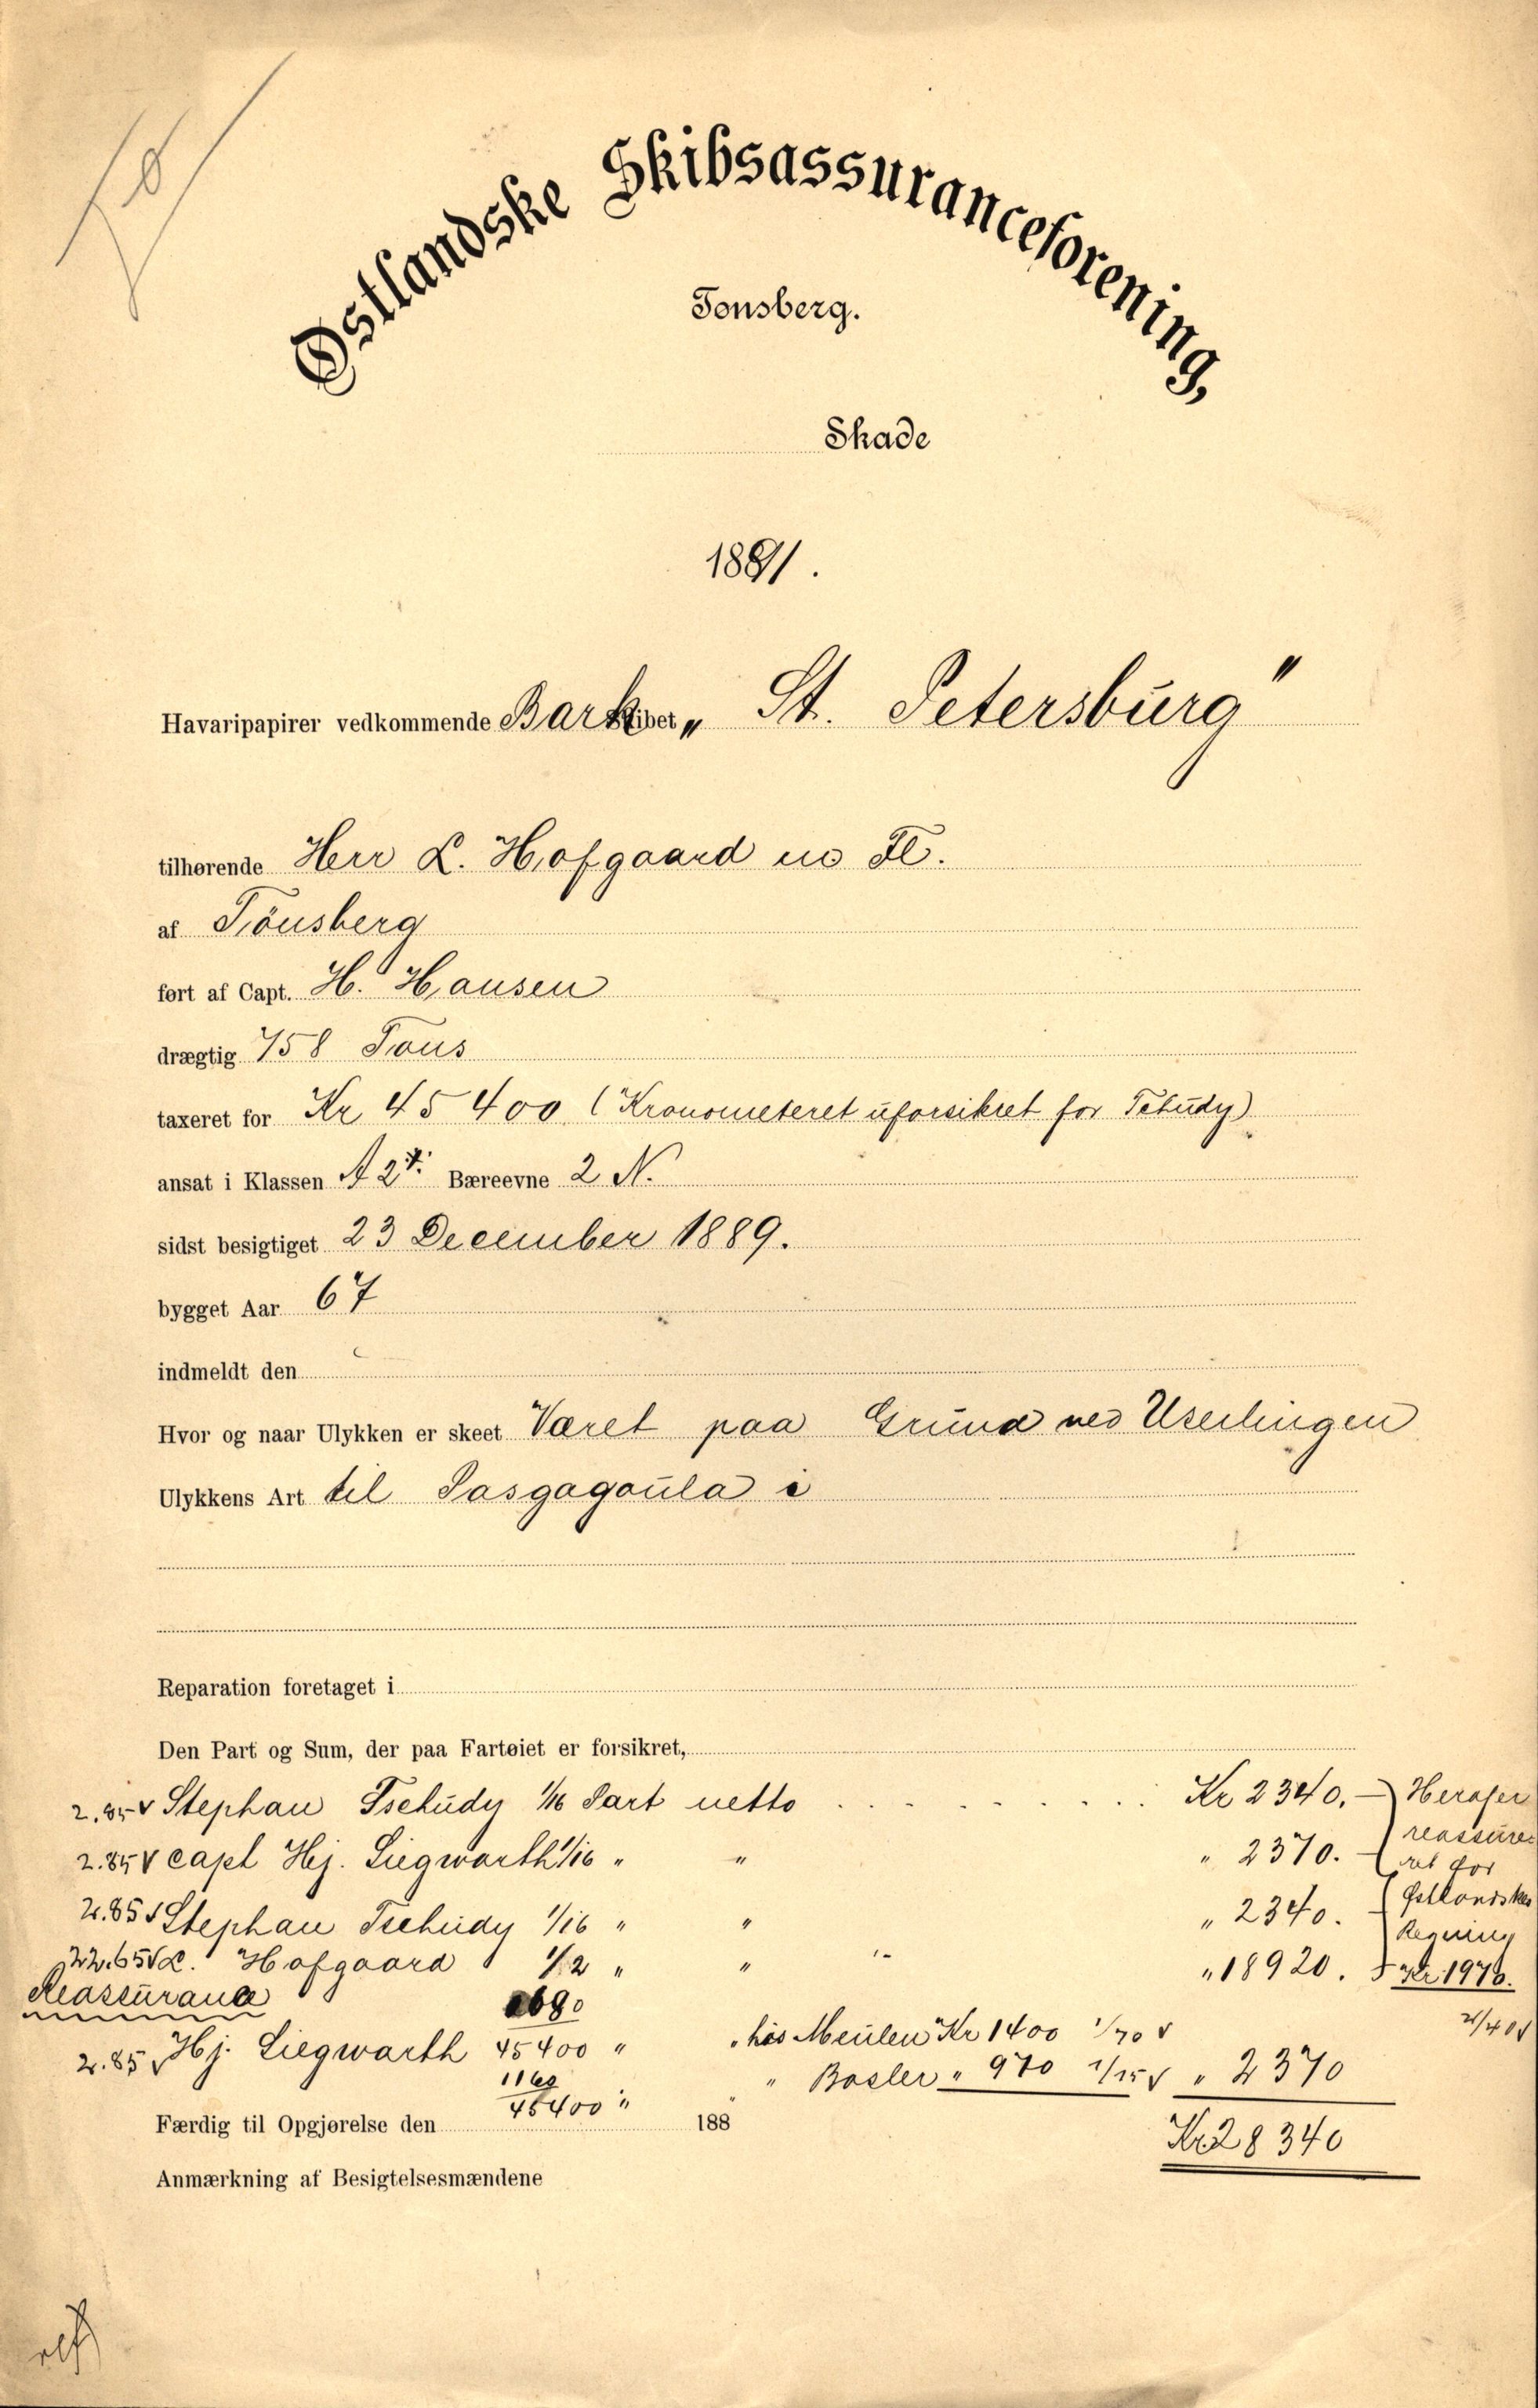 Østlandske Skibsassuranceforening,
Tønsberg.
Skade
1891.
Havaripapirer vedkommende Barkskibet „ St. Petersburg "
tilhørende Herr L. Hofgaard m Fl.
af Tönsberg
ført af Capt. H. Hansen
drægtig 758 Tons
taxeret for Kr 45400 (Kronometeret uforsikret for Tschudy)
ansat i Klassen A 2 Bæreevne 2 N.
sidst besigtiget 23 December 1889.
bygget Aar 67
indmeldt den
Hvor og naar Ulykken er skeet Været paa Grund ved Uselingen
Ulykkens Art til Pasgagoula i
Reparation foretaget i
Den Part og Sum, der paa Fartøiet er forsikret,
2.85 v Stephan Tschudy 1/16 Part netto . . . . . . . . . Kr 2340. - Heraf er
2.85 v Capt Hj. Siegwarth 1/16 " " " 2370. - reassure-
ret for
2.85 v Stephan Tschudy 1/16 " " " 2340. - Østlandske
Regning
22.65 v L. Hofgaard 1/2 " " " 18920. Kr 1970.
Reassurance
2.85 v Hj. Siegwarth 1690/45400 " hos Meulen Kr 1400 1/70 v
1160/45400 " " Basler " 970 v " 2370
Færdig til Opgjørelse den 188
Kr 28340
Anmærkning af Besigtelsesmændene